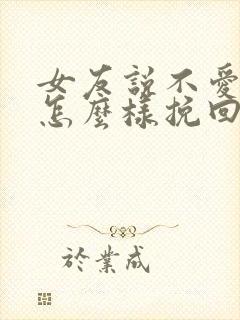 女友說不愛
怎麼樣挽回
於業成